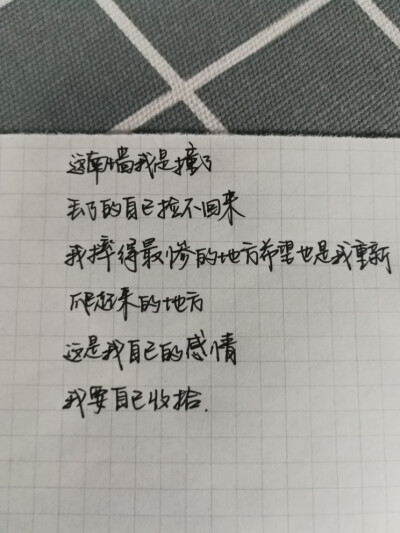 这南墙我是撞了
丢了的自己捡不回来
我摔得最惨的地方希望也是我重新
爬起来的地方
这是我自己的感情
我要自己收拾.